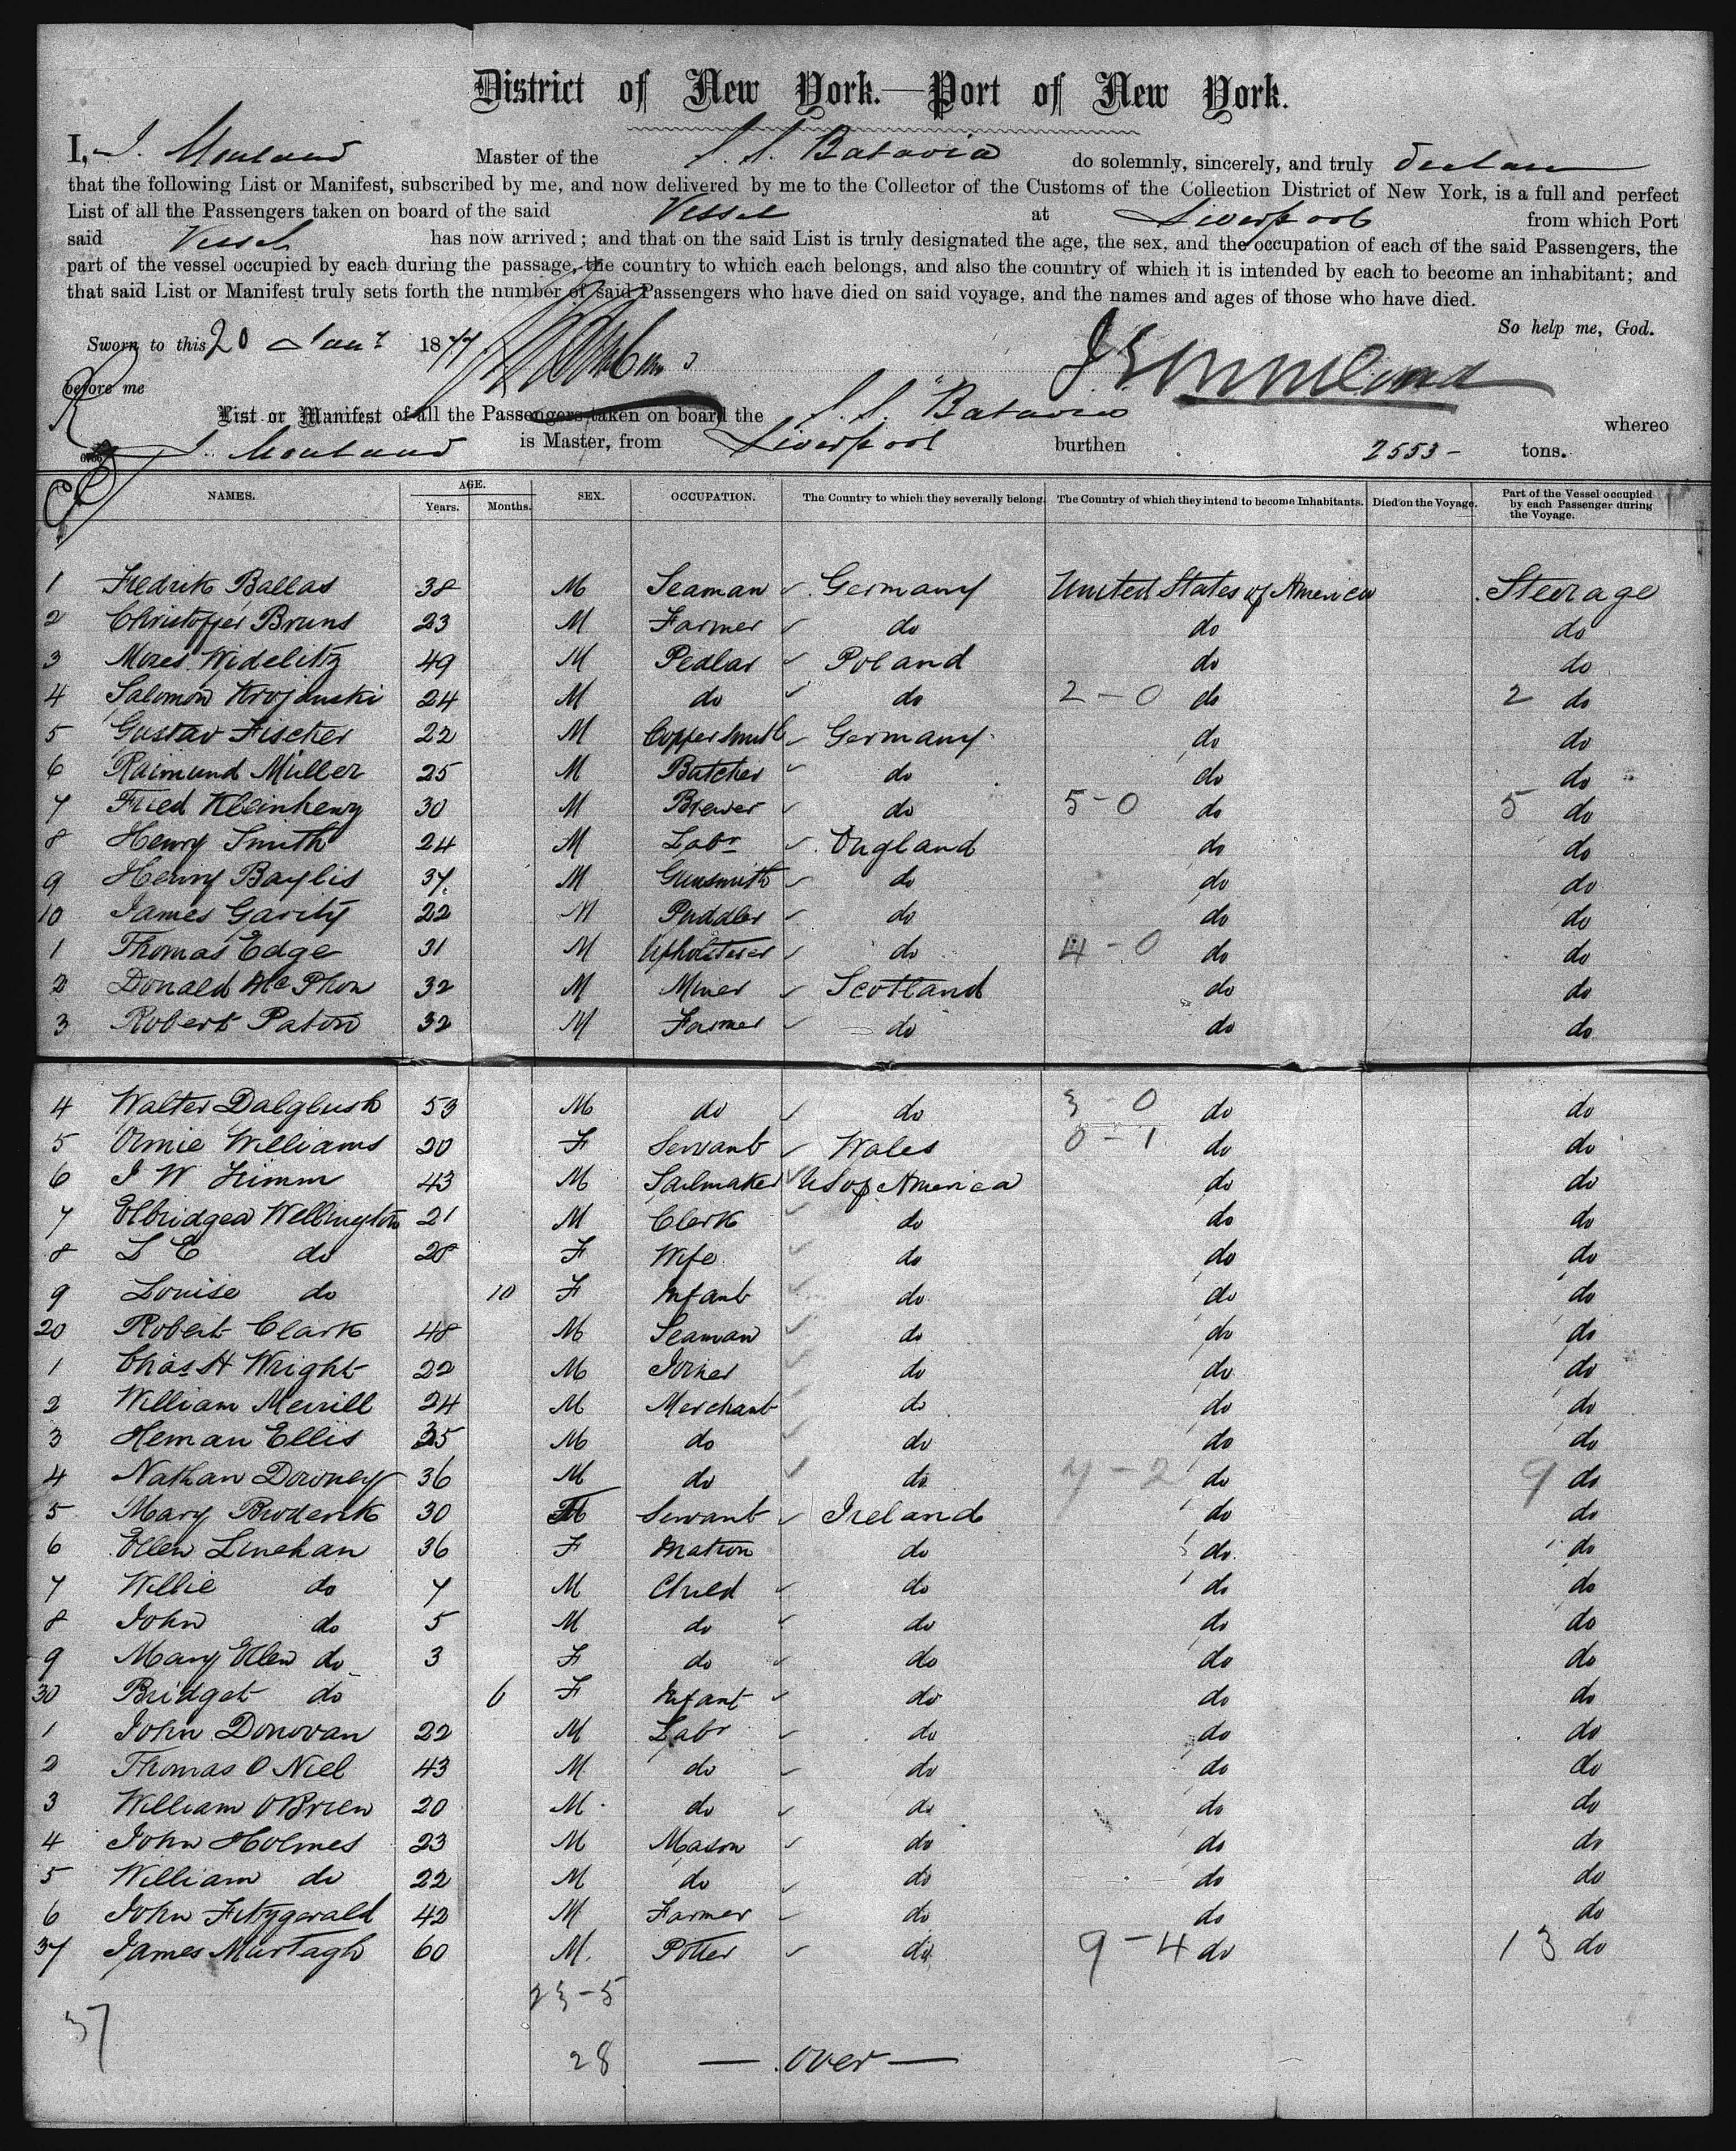 District of New York.—Port of New York.
I, J. Mouland Master of the S. S. Batavia do solemnly, sincerely, and truly declare
that the following List or Manifest, subscribed by me, and now delivered by me to the Collector of the Customs of the Collection District of New York, is a full and perfect
List of all the Passengers taken on board of the said Vessel at Liverpool from which Port
said Vessel has now arrived; and that on the said List is truly designated the age, the sex, and the occupation of each of the said Passengers, the
part of the vessel occupied by each during the passage, the country to which each belongs, and also the country of which it is intended by each to become an inhabitant; and
that said List or Manifest truly sets forth the number of said Passengers who have died on said voyage, and the names and ages of those who have died.
So help me, God.
Sworn to this 20 Jany 1877
before me
J E Mouland
List or Manifest of all the Passengers taken on board the S. S. "Batavia whereo
J. Mouland is Master, from Liverpool burthen 2553 - tons.
NAMES. AGE. Years. Months. SEX. OCCUPATION. The Country to which they severally belong. The Country of which they intend to become Inhabitants. Died on the Voyage. Part of the Vessel occupied by each Passenger during the Voyage.
1 Fredrik Ballas 38 M Seaman Germany United States of America Steerage
2 Christoffer Bruns 23 M Farmer do do do
3 Mozes Widelitz 49 M Pedlar Poland do do
4 Salomon Krojanski 24 M do do 2-0 do 2 do
5 Gustav Fischer 22 M Coppersmith Germany do do
6 Raimund Müller 25 M Butcher do do do
7 Fried Kleinhenz 30 M Brewer do 5-0 do 5 do
8 Henry Smith 24 M Labr England do do
9 Henry Baylis 37 M Gunsmith do do do
10 James Garity 22 M Puddler do do do
1 Thomas Edge 31 M Upholsterer do 4-0 do do
2 Donald McPhon 32 M Miner Scotland do do
3 Robert Paton 32 M Farmer do do do
4 Walter Dalglush 53 M do do 3-0 do do
5 Annie Williams 20 F Servant Wales 0-1 do do
6 J W Timm 43 M Sailmaker US of America do do
7 Elbridgea Wellington 21 M Clerk do do do
8 L E do 28 F Wife do do do
9 Louise do 10 F Infant do do do
20 Robert Clark 48 M Seaman do do do
1 Chas H Wright 22 M Joiner do do do
2 William Merrill 24 M Merchant do do do
3 Heman Ellis 35 M do do do do
4 Nathan Downey 36 M do do 7-2 do 9 do
5 Mary Broderik 30 F Servant Ireland do do
6 Ellen Linehan 36 F Matron do do do
7 Willie do 7 M Child do do do
8 John do 5 M do do do do
9 Mary Ellen do 3 F do do do do
30 Bridget do 6 F Infant do do do
1 John Donovan 22 M Labr do do do
2 Thomas O Niel 43 M do do do do
3 William OBrien 20 M do do do do
4 John Holmes 23 M Mason do do do
5 William do 22 M do do do do
6 John Fitzgerald 42 M Farmer do do do
37 James Murtagh 60 M. Potter do 9-4 do 13 do
23-5
37
28 — over —